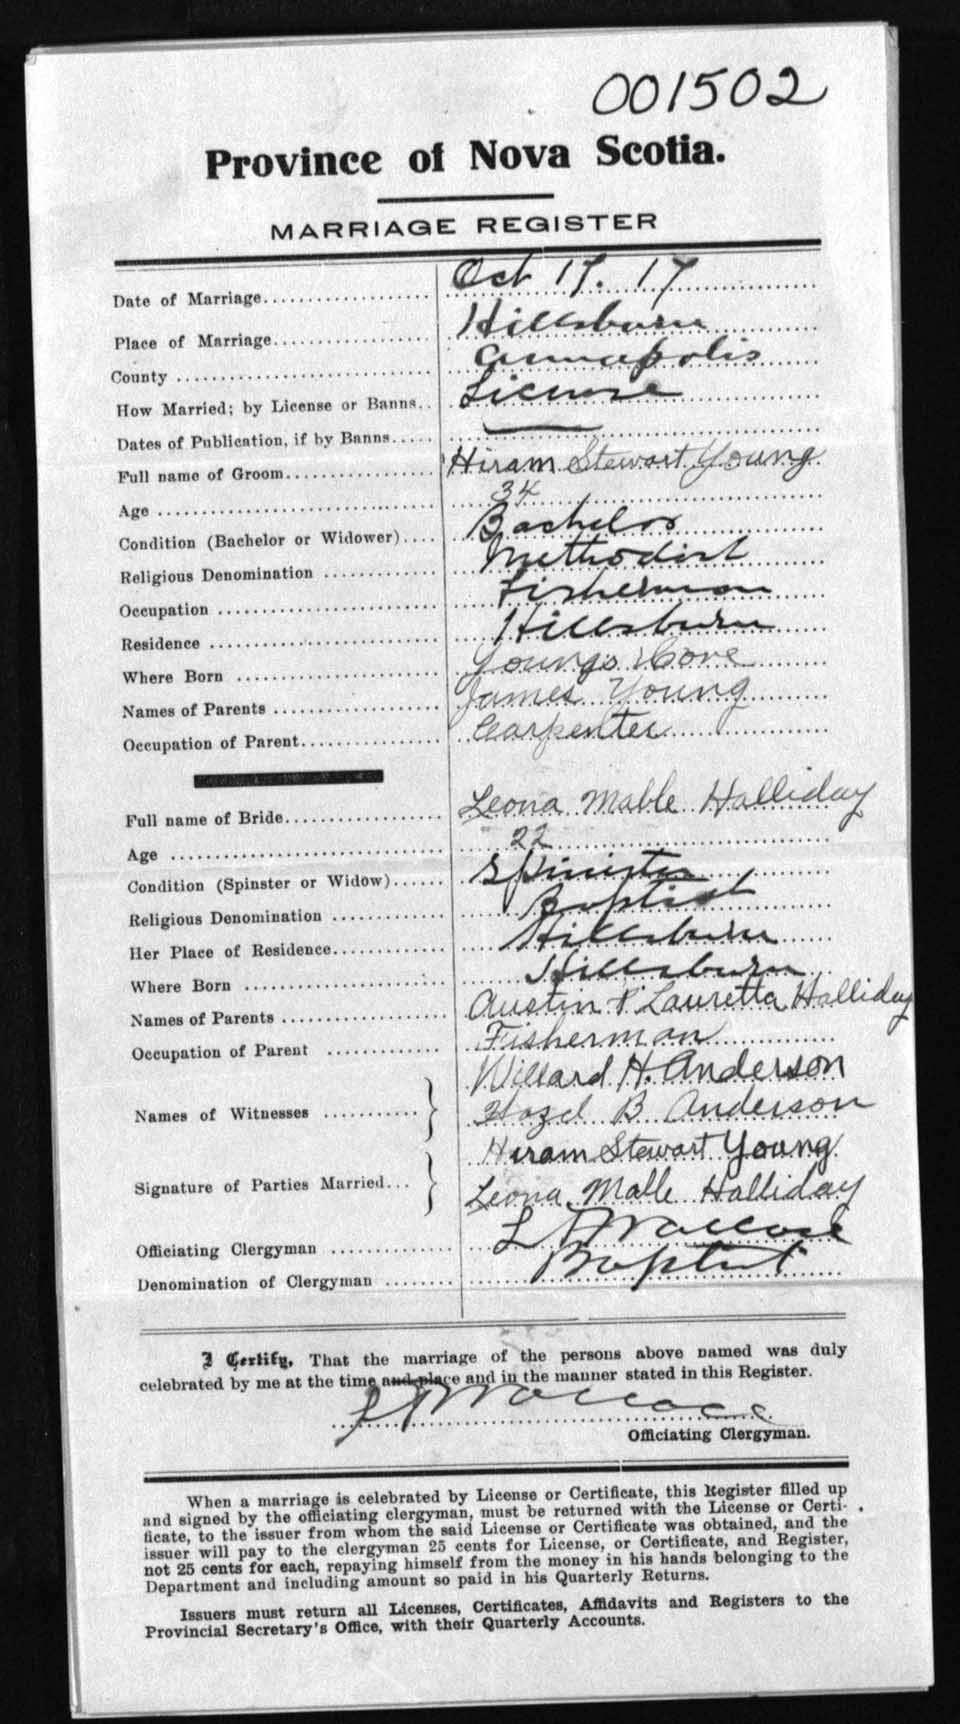 001502
Province of Nova Scotia.
MARRIAGE REGISTER
Date of Marriage Oct 17. 17
Place of Marriage Hillsburn
County Annapolis
How Married; by License or Banns License
Dates of Publication, if by Banns —
Full name of Groom Hiram Stewart Young
Age 34
Condition (Bachelor or Widower) Bachelor
Religious Denomination Methodist
Occupation Fisherman
Residence Hillsburn
Where Born Youngs Cove
Names of Parents James Young
Occupation of Parent Carpenter
Full name of Bride Leona Mable Halliday
Age 22
Condition (Spinster or Widow) Spinister
Religious Denomination Baptist
Her Place of Residence Hillsburn
Where Born Hillsburn
Names of Parents Austin & Lauretta Halliday
Occupation of Parent Fisherman
Willard H. Anderson
Names of Witnesses Hazel B Anderson
Hiram Stewart Young
Signature of Parties Married Leona Mable Halliday
Officiating Clergyman Wallace
Denomination of Clergyman Baptist
I Certify, That the marriage of the persons above named was duly
celebrated by me at the time and place and in the manner stated in this Register.
Wallace
Officiating Clergyman.
When a marriage is celebrated by License or Certificate, this Register filled up
and signed by the officiating clergyman, must be returned with the License or Certi-
ficate, to the issuer from whom the said License or Certificate was obtained, and the
issuer will pay to the clergyman 25 cents for License, or Certificate, and Register,
not 25 cents for each, repaying himself from the money in his hands belonging to the
Department and including amount so paid in his Quarterly Returns.
Issuers must return all Licenses, Certificates, Affidavits and Registers to the
Provincial Secretary's Office, with their Quarterly Accounts.